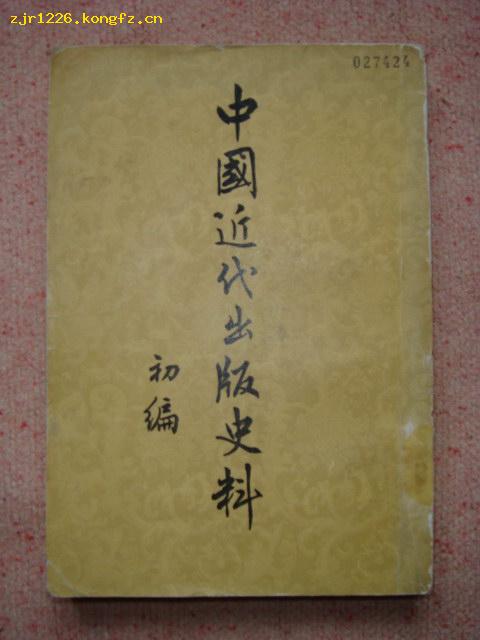 zjr1226.kongfz.cn
027424
中國近代出版史料
初编